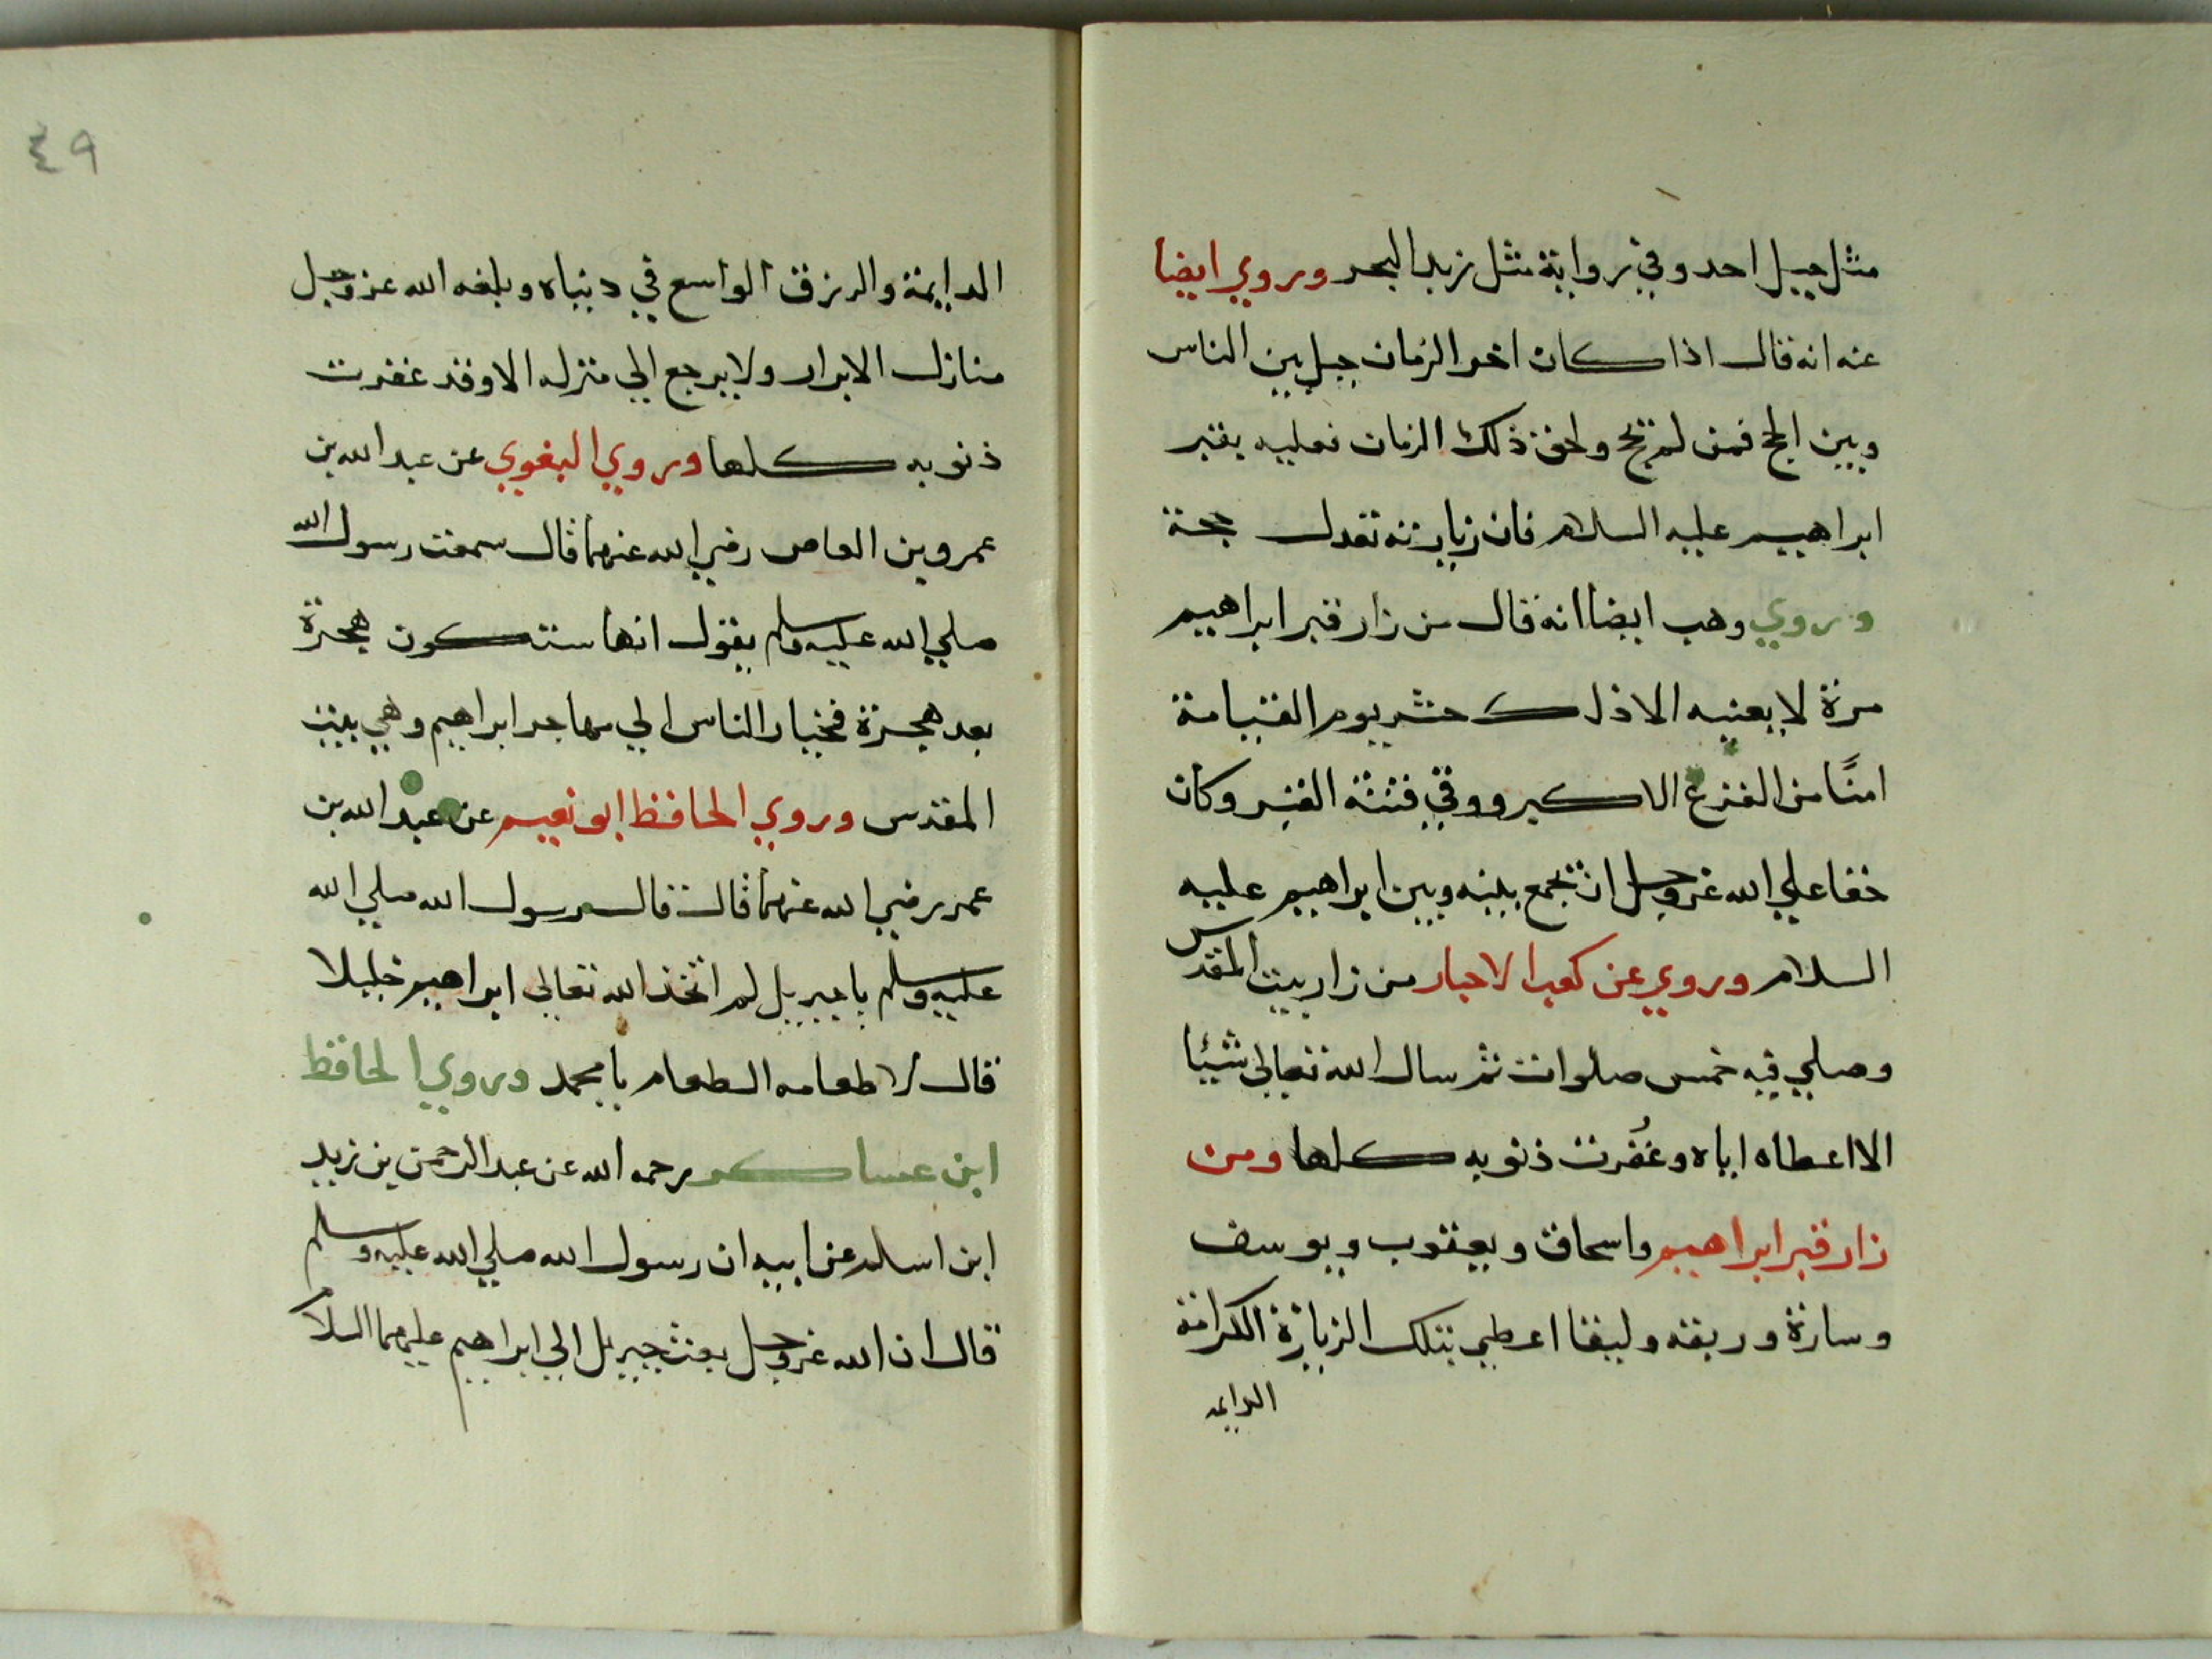 مثل جبل احد وفي رواية مثل زبد البحر وروي ايضا
عنه انه قال اذا كان اخر الزمان حيل بين الناس
وبين الحج فمن لم يحج ولحق ذلك الزمان فعليه بقبر
ابراهيم عليه السلام فان زيارته تعدل حجة
وروي وهب ايضا انه قال من زار قبر ابراهيم
مرة لا يعنيه الا ذلك حشر يوم القيامة
امنًا من الفزع الاكبر ووقي فتنة القبر وكان
حقا علي الله عزوجل ان يجمع بينه وبين ابراهيم عليه
السلام وروي عن كعب الاحبار من زار بيت المقدس
وصلي فيه خمس صلوات ثم سال الله تعالى شيئا
الا اعطاه اياه وغُفرت ذنوبه كلها ومن
زار قبر ابراهيم واسحاق ويعقوب ويوسف
وسارة وربقه وليقا اعطي بتلك الزيارة الكرامة
الدايمه
٤٩
الدايمة والرزق الواسع في دنياه وبلغه الله عزوجل
منازل الابرار ولا يرجع الي منزله الا وقد غفرت
ذنوبه كلها وروي البغوي عن عبد الله بن
عمرو بن العاص رضي الله عنهما قال سمعت رسول الله
صلي الله عليه وسلم يقول انها ستكون هجرة
بعد هجرة فخيار الناس الي مهاجر ابراهيم وهي بيت
المقدس وروي الحافظ ابو نعيم عن عبد الله بن
عمر رضي الله عنهما قال قال رسول الله صلي الله
عليه وسلم يا جبريل لم اتخذ الله تعالي ابراهيم خليلا
قال لاطعامه الطعام يا محمد وروي الحافظ
ابن عساكر رحمه الله عن عبد الرحمن بن زيد
ابن اسلم عن ابيه ان رسول الله صلي الله عليه وسلم
قال ان الله عزوجل بعث جبريل الي ابراهيم عليهما السلا